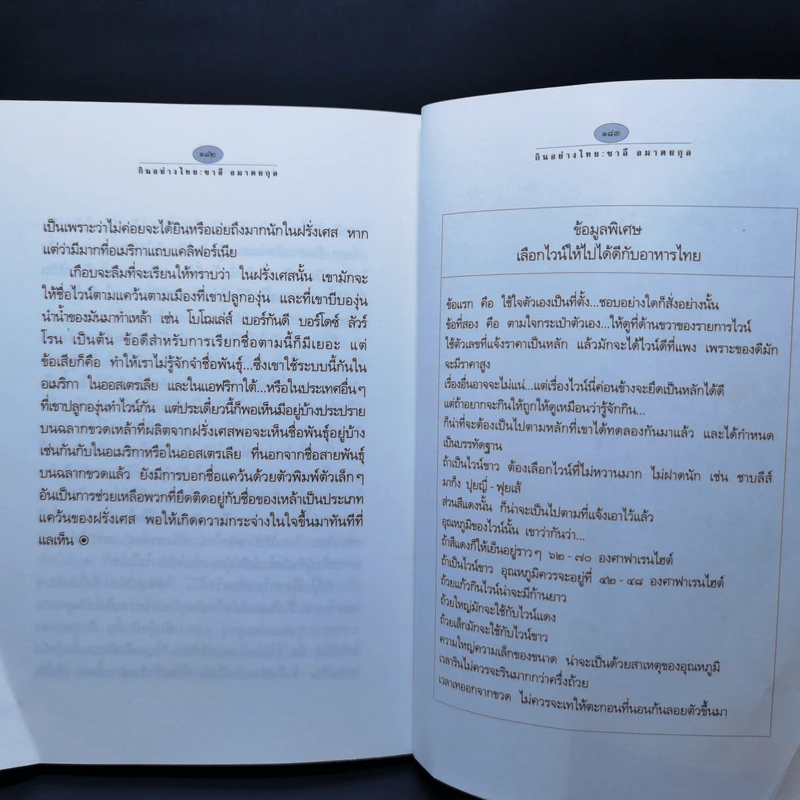 ๑๘๒
กินอย่างไทย : ชาลี อมาตยกุล
เป็นเพราะว่าไม่ค่อยจะได้ยินหรือเอ่ยถึงมากนักในฝรั่งเศส หาก
แต่ว่ามีมากที่อเมริกาแถบแคลิฟอร์เนีย
เกือบจะลืมที่จะเรียนให้ทราบว่า ในฝรั่งเศสนั้น เขามักจะ
ให้ชื่อไวน์ตามแคว้นตามเมืองที่เขาปลูกองุ่น และที่เขาบีบองุ่น
นำน้ำของมันมาทำเหล้า เช่น โบโฌเล่ส์ เบอร์กันดี บอร์โดซ์ ลัวร์
โรน เป็นต้น ข้อดีสำหรับการเรียกชื่อตามนี้ก็มีเยอะ แต่
ข้อเสียก็คือ ทำให้เราไม่รู้จักจำชื่อพันธุ์...ซึ่งเขาใช้ระบบนี้กันใน
อเมริกา ในออสเตรเลีย และในแอฟริกาใต้...หรือในประเทศอื่นๆ
ที่เขาปลูกองุ่นทำไวน์กัน แต่ประเดี๋ยวนี้ก็พอเห็นมีอยู่บ้างประปราย
บนฉลากขวดเหล้าที่ผลิตจากฝรั่งเศสพอจะเห็นชื่อพันธุ์อยู่บ้าง
เช่นกันกับในอเมริกาหรือในออสเตรเลีย ที่นอกจากชื่อสายพันธุ์
บนฉลากขวดแล้ว ยังมีการบอกชื่อแคว้นด้วยตัวพิมพ์ตัวเล็กๆ
อันเป็นการช่วยเหลือพวกที่ยึดติดอยู่กับชื่อของเหล้าเป็นประเภท
แคว้นของฝรั่งเศส พอให้เกิดความกระจ่างในใจขึ้นมาทันทีที่
แลเห็น
๑๘๓
กินอย่างไทย : ชาลี อมาตยกุล
ข้อมูลพิเศษ
เลือกไวน์ให้ไปได้ดีกับอาหารไทย
ข้อแรก คือ ใช้ใจตัวเองเป็นที่ตั้ง...ชอบอย่างใดก็สั่งอย่างนั้น
ข้อที่สอง คือ ตามใจกระเป๋าตัวเอง...ให้ดูที่ด้านขวาของรายการไวน์
ใช้ตัวเลขที่แจ้งราคาเป็นหลัก แล้วมักจะได้ไวน์ดีที่แพง เพราะของดีมัก
จะมีราคาสูง
เรื่องอื่นอาจจะไม่แน่...แต่เรื่องไวน์นี่ค่อนข้างจะยึดเป็นหลักได้ดี
แต่ถ้าอยากจะกินให้ถูกให้ดูเหมือนว่ารู้จักกิน...
ก็น่าที่จะต้องเป็นไปตามหลักที่เขาได้ทดลองกันมาแล้ว และได้กำหนด
เป็นบรรทัดฐาน
ถ้าเป็นไวน์ขาว ต้องเลือกไวน์ที่ไม่หวานมาก ไม่ฝาดนัก เช่น ชาบลีส์
มากิ้ง ปุยญี่ - ฟุยเส้
ส่วนสีแดงนั้น ก็น่าจะเป็นไปตามที่แจ้งเอาไว้แล้ว
อุณหภูมิของไวน์นั้น เขาว่ากันว่า...
ถ้าสีแดงก็ให้เย็นอยู่ราวๆ ๖๒ - ๗๐ องศาฟาเรนไฮต์
ถ้าเป็นไวน์ขาว อุณหภูมิควรจะอยู่ที่ ๔๒ - ๔๘ องศาฟาเรนไฮต์
ถ้วยแก้วกินไวน์น่าจะมีก้านยาว
ถ้วยใหญ่มักจะใช้กับไวน์แดง
ถ้วยเล็กมักจะใช้กับไวน์ขาว
ความใหญ่ความเล็กของขนาด น่าจะเป็นด้วยสาเหตุของอุณหภูมิ
เวลารินไม่ควรจะรินมากกว่าครึ่งถ้วย
เวลาเทออกจากขวด ไม่ควรจะเทให้ตะกอนที่นอนก้นลอยตัวขึ้นมา